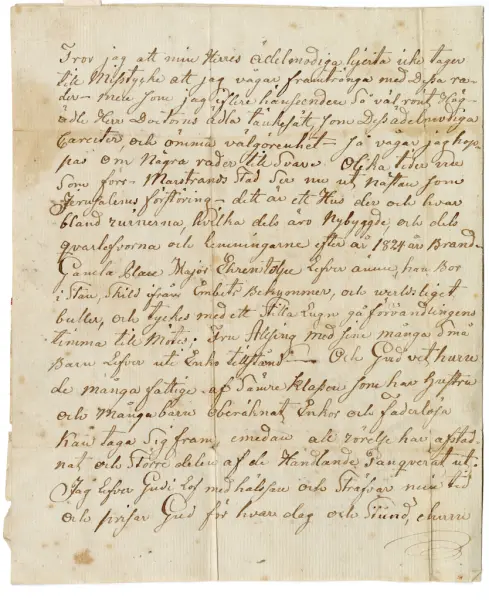 Tror jag att min Herres ädelmodiga hjerta icke tager
till Misstycke att jag vågar framtränga med dessa ra-
der – men som jag i flere hänseenden så väl rönt Hög-
ädle Herr Doctorns ädla tänkesätt, som dess ädelmodiga
Carecter och ömma välgörenhet – så vågar jag hop-
pas om några rader till Svar. Olika tider nu
som förr. Marstrands Stad ser nu ut nästan som
Jerusalems förstöring – det är ett Hus der och hvar
bland ruinerna, hvilka dels äro Nybyggde, och dels
qvarlefvorna och lemningarne efter år 1824 års Brand.
Gamla Major Ehrenstolpe Lefver ännu, han Bor
i Stan, Skild ifrån Embets Bekymmer, och werldsliget
buller, och tyckes med ett Stilla Lugn gå förvandlingens
timma till Mötes; Fru Alsing med sine många små
Barn Lefver uti Enko tillstånd – Och Gud vet huru
de många fattige af Sämre Klassen som har Hustru
och Många barn oberäknat Enkor och Faderlösa
kan taga Sig fram, emedan all rörelse har afstad-
nat, och Större delen af de Handlande Banqverat ut.
Jag Lefver Gudi Lof med hälsan och Sträfvar min tid
och prisar Gud för hvar dag och Stund, ehuru